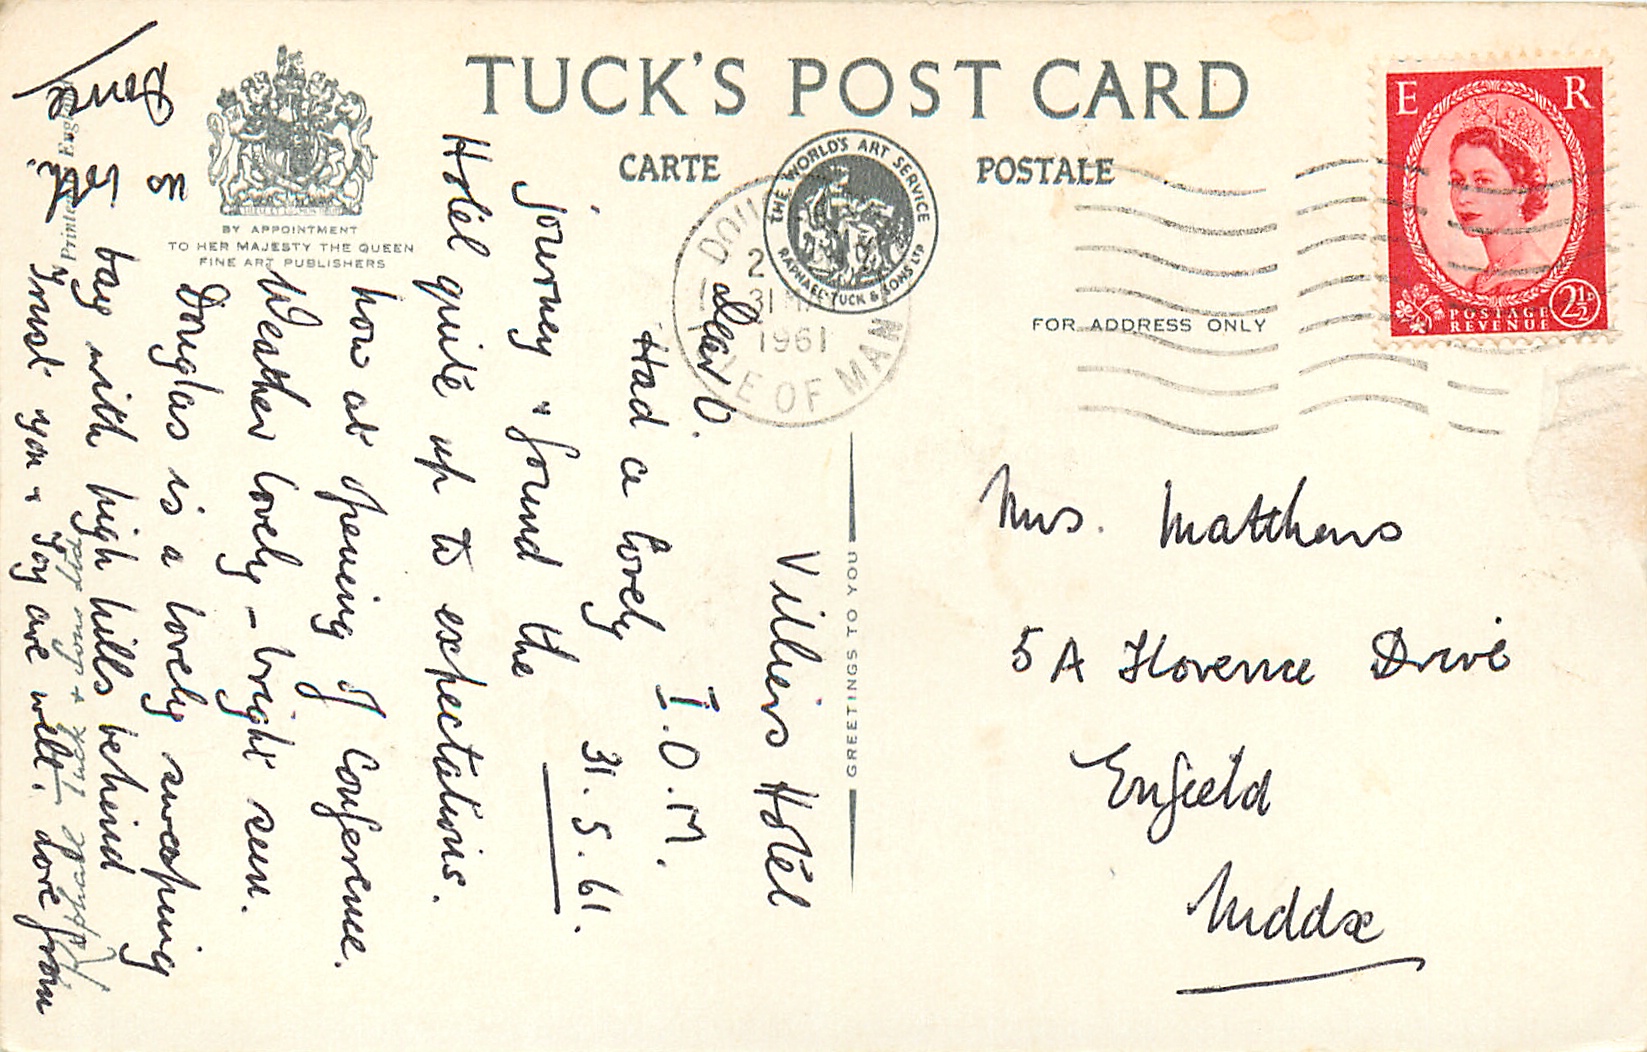 TUCK'S POST CARD
CARTE POSTALE
BY APPOINTMENT
TO HER MAJESTY THE QUEEN
FINE ART PUBLISHERS
THE WORLD'S ART SERVICE
RAPHAEL TUCK & SONS LTD
ISLE OF MAN
31
1961
E R
POSTAGE
REVENUE
2½D
FOR ADDRESS ONLY
GREETINGS TO YOU
Printed England
Raphael Tuck & Sons Ltd
Villiers Hotel
I.O.M.
31.5.61.
Dear V.
Had a lovely
journey & found the
Hotel quite up to expectations.
Now at opening of Conference.
Weather lovely - bright sun.
Douglas is a lovely sweeping
bay with high hills behind
Trust you & Joy are well. Love from
us both.
Mrs. Matthews
5A Florence Drive
Enfield
Middx